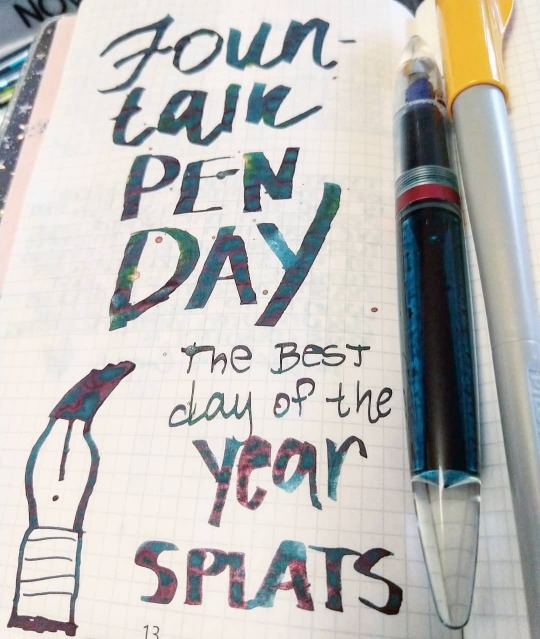 NO
Foun-
tain
PEN
DAY
The BEST
day of the
year
SPLATS
13